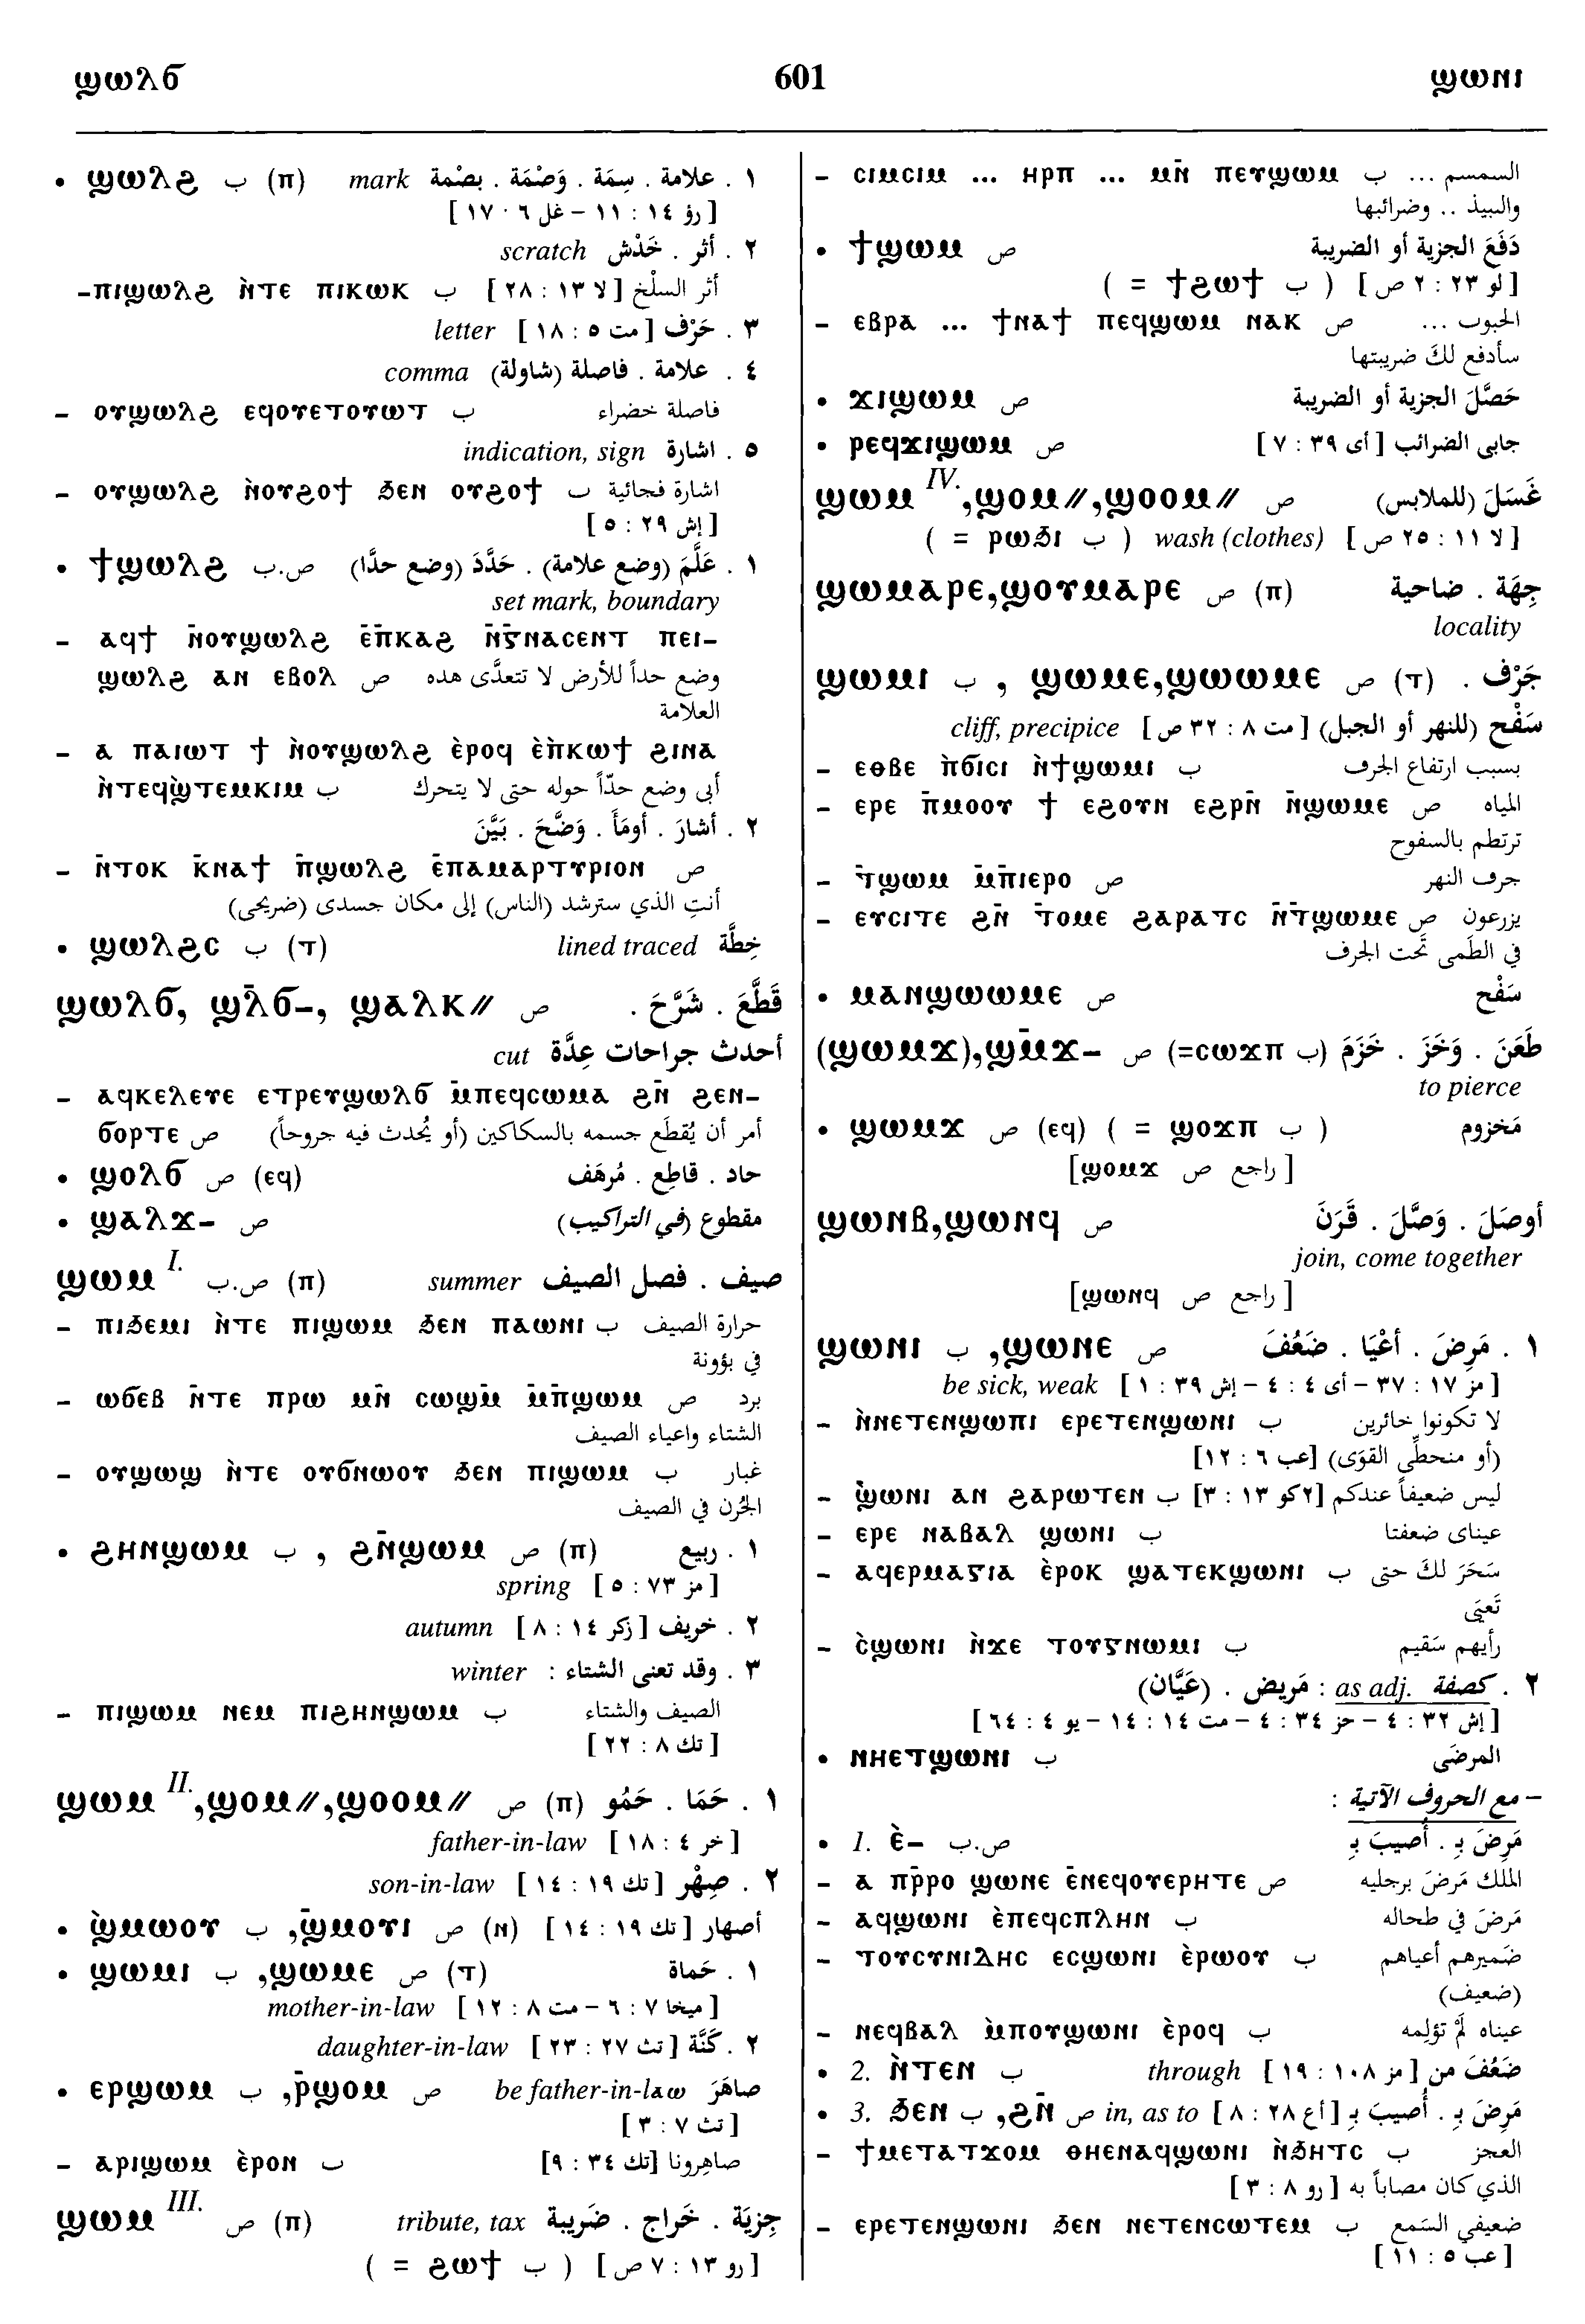 ϣⲱⲗϭ 601 ϣⲱⲛⲓ
• ϣⲱⲗϩ ب (ⲡ) mark ١ . علامة . سِمَة . وَصْمَة . بصْمة
[ رؤ ١٤ : ١١ – غل ٦ · ١٧ ]
scratch ٢ . أثر . خَدْش
–ⲡⲓϣⲱⲗϩ ⲛ̀ⲧⲉ ⲡⲓⲕⲱⲕ ب أثر السلْخ [ لا ١٣ : ٢٨ ]
letter ٣ . حَرْف [ مت ٥ : ١٨ ]
comma ٤ . علامة . فاصلة (شاولة)
– ⲟⲩϣⲱⲗϩ ⲉϥⲟⲩⲉⲧⲟⲩⲱⲧ ب فاصلة خضراء
indication, sign ٥ . اشارة
– ⲟⲩϣⲱⲗϩ ⲛ̀ⲟⲩϩⲟϯ ϧⲉⲛ ⲟⲩϩⲟϯ ب اشارة فجائية
[ إش ٢٩ : ٥ ]
• ϯϣⲱⲗϩ ص.ب ١ . عَلَّمَ (وضع علامة) . حَدَّدَ (وضع حدًّا)
set mark, boundary
– ⲁϥϯ ⲛ̄ⲟⲩϣⲱⲗϩ ⲉ̄ⲡ̄ⲕⲁϩ ⲛ̄ϥ̄ⲛⲁⲥⲉⲛⲧ ⲡⲉⲓ–
ϣⲱⲗϩ ⲁⲛ ⲉⲃⲟⲗ ص وضع حداً للأرض لا تتعدَّى هذه
العلامة
– ⲁ ⲡⲁⲓⲱⲧ ϯ ⲛ̀ⲟⲩϣⲱⲗϩ ⲉ̀ⲣⲟϥ ⲉ̀ⲡ̀ⲕⲱϯ ϩⲓⲛⲁ
ⲛ̀ⲧⲉϥϣ̀ⲧⲉⲙⲕⲓⲙ ب أبى وضع حدّاً حوله حتى لا يتحرك
٢ . أشارَ . أومَأَ . وَضَّحَ . بَيَّنَ
– ⲛ̄ⲧⲟⲕ ⲕ̄ⲛⲁϯ ⲡ̄ϣⲱⲗϩ ⲉ̄ⲡⲁⲙⲁⲣⲧⲩⲣⲓⲟⲛ ص
أنتِ الذي سترشد (الناس) إلى مكان جسدى (ضريحى)
• ϣⲱⲗϩⲥ ب (ⲧ) lined traced خِطَّة
ϣⲱⲗϭ, ϣⲗ̄ϭ–, ϣⲁⲗⲕ// ص قَطَّعَ . شَرَّحَ .
cut أحدث جراحات عِدَّة
– ⲁϥⲕⲉⲗⲉⲩⲉ ⲉⲧⲣⲉⲩϣⲱⲗϭ ⲙ̄ⲡⲉϥⲥⲱⲙⲁ ϩⲛ̄ ϩⲉⲛ–
ϭⲟⲣⲧⲉ ص أمر أن يُقطَع جسمه بالسكاكين (أو يُحدث فيه جروحاً)
• ϣⲟⲗϭ ص (ⲉϥ) حاد . قاطِع . مُرهَف
• ϣⲁⲗϫ– ص مقطوع (في التراكيب)
ϣⲱⲙ I. ص.ب (ⲡ) summer صيف . فصل الصيف
– ⲡⲓϧⲉⲙⲓ ⲛ̀ⲧⲉ ⲡⲓϣⲱⲙ ϧⲉⲛ ⲡⲁⲱⲛⲓ ب حرارة الصيف
في بؤونة
– ⲱϭⲉⲃ ⲛ̄ⲧⲉ ⲡⲣⲱ ⲙⲛ̄ ⲥⲱϣⲙ̄ ⲙ̄ⲡ̄ϣⲱⲙ ص برد
الشتاء واعياء الصيف
– ⲟⲩϣⲱϣ ⲛ̀ⲧⲉ ⲟⲩϭⲛⲱⲟⲩ ϧⲉⲛ ⲡⲓϣⲱⲙ ب غبار
الجُرن في الصيف
• ϩⲏⲛϣⲱⲙ ب , ϩⲛ̄ϣⲱⲙ ص (ⲡ) ١ . ربيع
spring [ مز ٧٣ : ٥ ]
autumn ٢ . خريف [ زكر ١٤ : ٨ ]
winter ٣ . وقد تعنى الشتاء :
– ⲡⲓϣⲱⲙ ⲛⲉⲙ ⲡⲓϩⲏⲛϣⲱⲙ ب الصيف والشتاء
[ تك ٨ : ٢٢ ]
ϣⲱⲙ II.,ϣⲟⲙ//,ϣⲟⲟⲙ// ص (ⲡ) ١ . حَمَا . حَمُو
father-in-law [ خر ٤ : ١٨ ]
son-in-law ٢ . صِهْر [ تك ١٩ : ١٤ ]
• ϣ̀ⲙⲱⲟⲩ ب ,ϣ̄ⲙⲟⲩⲓ ص (ⲛ) أصهار [ تك ١٩ : ١٤ ]
• ϣⲱⲙⲓ ب ,ϣⲱⲙⲉ ص (ⲧ) ١ . حَماة
mother-in-law [ ميخا ٧ : ٦ – مت ٨ : ١٢ ]
daughter-in-law ٢ . كَنَّة [ تث ٢٧ : ٢٣ ]
• ⲉⲣϣⲱⲙ ب ,ⲣ̄ϣⲟⲙ ص be father-in-law صاهَرَ
[ تث ٧ : ٣ ]
– ⲁⲣⲓϣⲱⲙ ⲉ̀ⲣⲟⲛ ب صاهِرونا [تك ٣٤ : ٩]
ϣⲱⲙ III. ص (ⲡ) tribute, tax جِزيَة . خَراج . ضَريبة
( = ϩⲱϯ ب ) [ رو ١٣ : ٧ ص ]
– ⲥⲓⲙⲥⲓⲙ ... ⲏⲣⲡ ... ⲙⲛ̄ ⲡⲉⲩϣⲱⲙ ب السمسم ...
والنبيذ .. وضرائبها
• ϯϣⲱⲙ ص دَفَعَ الجزية أو الضريبة
( = ϯϩⲱϯ ب ) [ لو ٢٣ : ٢ ص ]
– ⲉⲃⲣⲁ ... ϯⲛⲁϯ ⲡⲉϥϣⲱⲙ ⲛⲁⲕ ص الحبوب ...
سأدفع لكَ ضريبتها
• ϫⲓϣⲱⲙ ص حَصَّلَ الجزية أو الضريبة
• ⲣⲉϥϫⲓϣⲱⲙ ص جابى الضرائب [ أى ٣٩ : ٧ ]
ϣⲱⲙ IV.,ϣⲟⲙ//,ϣⲟⲟⲙ// ص غَسَلَ (للملابس)
( = ⲣⲱϧⲓ ب ) wash (clothes) [ لا ١١ : ٢٥ ص ]
ϣⲱⲙⲁⲣⲉ,ϣⲟⲩⲙⲁⲣⲉ ص (ⲡ) جِهَة . ضاحية
locality
ϣⲱⲙⲓ ب , ϣⲱⲙⲉ,ϣⲱⲱⲙⲉ ص (ⲧ) جَرْف .
cliff, precipice سَفْح (للنهر أو الجبل) [ مت ٨ : ٣٢ ص ]
– ⲉⲑⲃⲉ ⲡ̀ϭⲓⲥⲓ ⲛ̀ϯϣⲱⲙⲓ ب بسبب ارتفاع الجرف
– ⲉⲣⲉ ⲡ̄ⲙⲟⲟⲩ ϯ ⲉϩⲟⲩⲛ ⲉϩⲣⲛ̄ ⲛ̄ϣⲱⲙⲉ ص المياه
ترتطم بالسفوح
– ⲧ̄ϣⲱⲙ ⲙ̄ⲡ̄ⲓⲉⲣⲟ ص جرف النهر
– ⲉⲩⲥⲓⲧⲉ ϩⲛ̄ ⲧ̄ⲟⲙⲉ ϩⲁⲣⲁⲧⲥ ⲛ̄ⲧ̄ϣⲱⲙⲉ ص يزرعون
في الطَمى تَحت الجرف
• ⲙⲁⲛϣⲱⲱⲙⲉ ص سَفْح
(ϣⲱⲙϫ),ϣⲙ̄ϫ– ص (=ⲥⲱϫⲡ ب) طَعَنَ . وَخَزَ . خَزَمَ
to pierce
• ϣⲱⲙϫ ص (ⲉϥ) ( = ϣⲟϫⲡ ب ) مَخزوم
[ϣⲟⲙϫ راجع ص ]
ϣⲱⲛⲃ,ϣⲱⲛϥ ص أوصَلَ . وَصَّلَ . قَرَنَ
join, come together
[ϣⲱⲛϥ راجع ص ]
ϣⲱⲛⲓ ب ,ϣⲱⲛⲉ ص ١ . مَرِضَ . أعْيَا . ضَعُفَ
be sick, weak [ مز ١٧ : ٣٧ – أى ٤ : ٤ – إش ٣٩ : ١ ]
– ⲛ̀ⲛⲉⲧⲉⲛϣⲱⲡⲓ ⲉⲣⲉⲧⲉⲛϣⲱⲛⲓ ب لا تكونوا خائرين
(أو منحطِّى القوَى) [عب ٦ : ١٢]
– ϣ̀ⲱⲛⲓ ⲁⲛ ϩⲁⲣⲱⲧⲉⲛ ب ليس ضعيفاً عندكم [٢كو ١٣ : ٣]
– ⲉⲣⲉ ⲛⲁⲃⲁⲗ ϣⲱⲛⲓ ب عيناى ضعفتا
– ⲁϥⲉⲣⲙⲁⲅⲓⲁ ⲉ̀ⲣⲟⲕ ϣⲁⲧⲉⲕϣⲱⲛⲓ ب سَحَرَ لكَ حتى
تَعيَى
– ⲥ̀ϣⲱⲛⲓ ⲛ̀ϫⲉ ⲧⲟⲩⲅⲛⲱⲙⲓ ب رأيهم سَقيم
٢ . كصفة as adj. : مَريض . (عَيَّان)
[ إش ٣٢ : ٤ – حز ٣٤ : ٤ – مت ١٤ : ١٤ – يو ٤ : ٦٤ ]
• ⲛⲏⲉⲧϣⲱⲛⲓ ب المرضَى
– مع الحروف الآتية :
• 1. ⲉ̀– ص.ب مَرِضَ بِـ . أُصيبَ بِـ
– ⲁ ⲡⲣ̄ⲣⲟ ϣⲱⲛⲉ ⲉ̄ⲛⲉϥⲟⲩⲉⲣⲏⲧⲉ ص الملك مَرِضَ برجليه
– ⲁϥϣⲱⲛⲓ ⲉ̀ⲡⲉϥⲥⲡⲗⲏⲛ ب مَرِضَ في طحاله
– ⲧⲟⲩⲥⲩⲛⲓⲇⲏⲥ ⲉⲥϣⲱⲛⲓ ⲉ̀ⲣⲱⲟⲩ ب ضميرهم أعياهم
(ضعيف)
– ⲛⲉϥⲃⲁⲗ ⲙ̀ⲡⲟⲩϣⲱⲛⲓ ⲉ̀ⲣⲟϥ ب عيناه لَمْ تؤلمه
• 2. ⲛ̀ⲧⲉⲛ ب through ضَعُفَ من [ مز ١٠٨ : ١٩ ]
• 3. ϧⲉⲛ ب ,ϩⲛ̄ ص in, as to مَرِضَ بِـ . أُصيبَ بِـ [ أع ٢٨ : ٨ ]
– ϯⲙⲉⲧⲁⲧϫⲟⲙ ⲑⲏⲉⲛⲁϥϣⲱⲛⲓ ⲛ̀ϧⲏⲧⲥ ب العجز
الذي كان مصاباً به [ رو ٨ : ٣ ]
– ⲉⲣⲉⲧⲉⲛϣⲱⲛⲓ ϧⲉⲛ ⲛⲉⲧⲉⲛⲥⲱⲧⲉⲙ ب ضعيفي السَمع
[ عب ٥ : ١١ ]